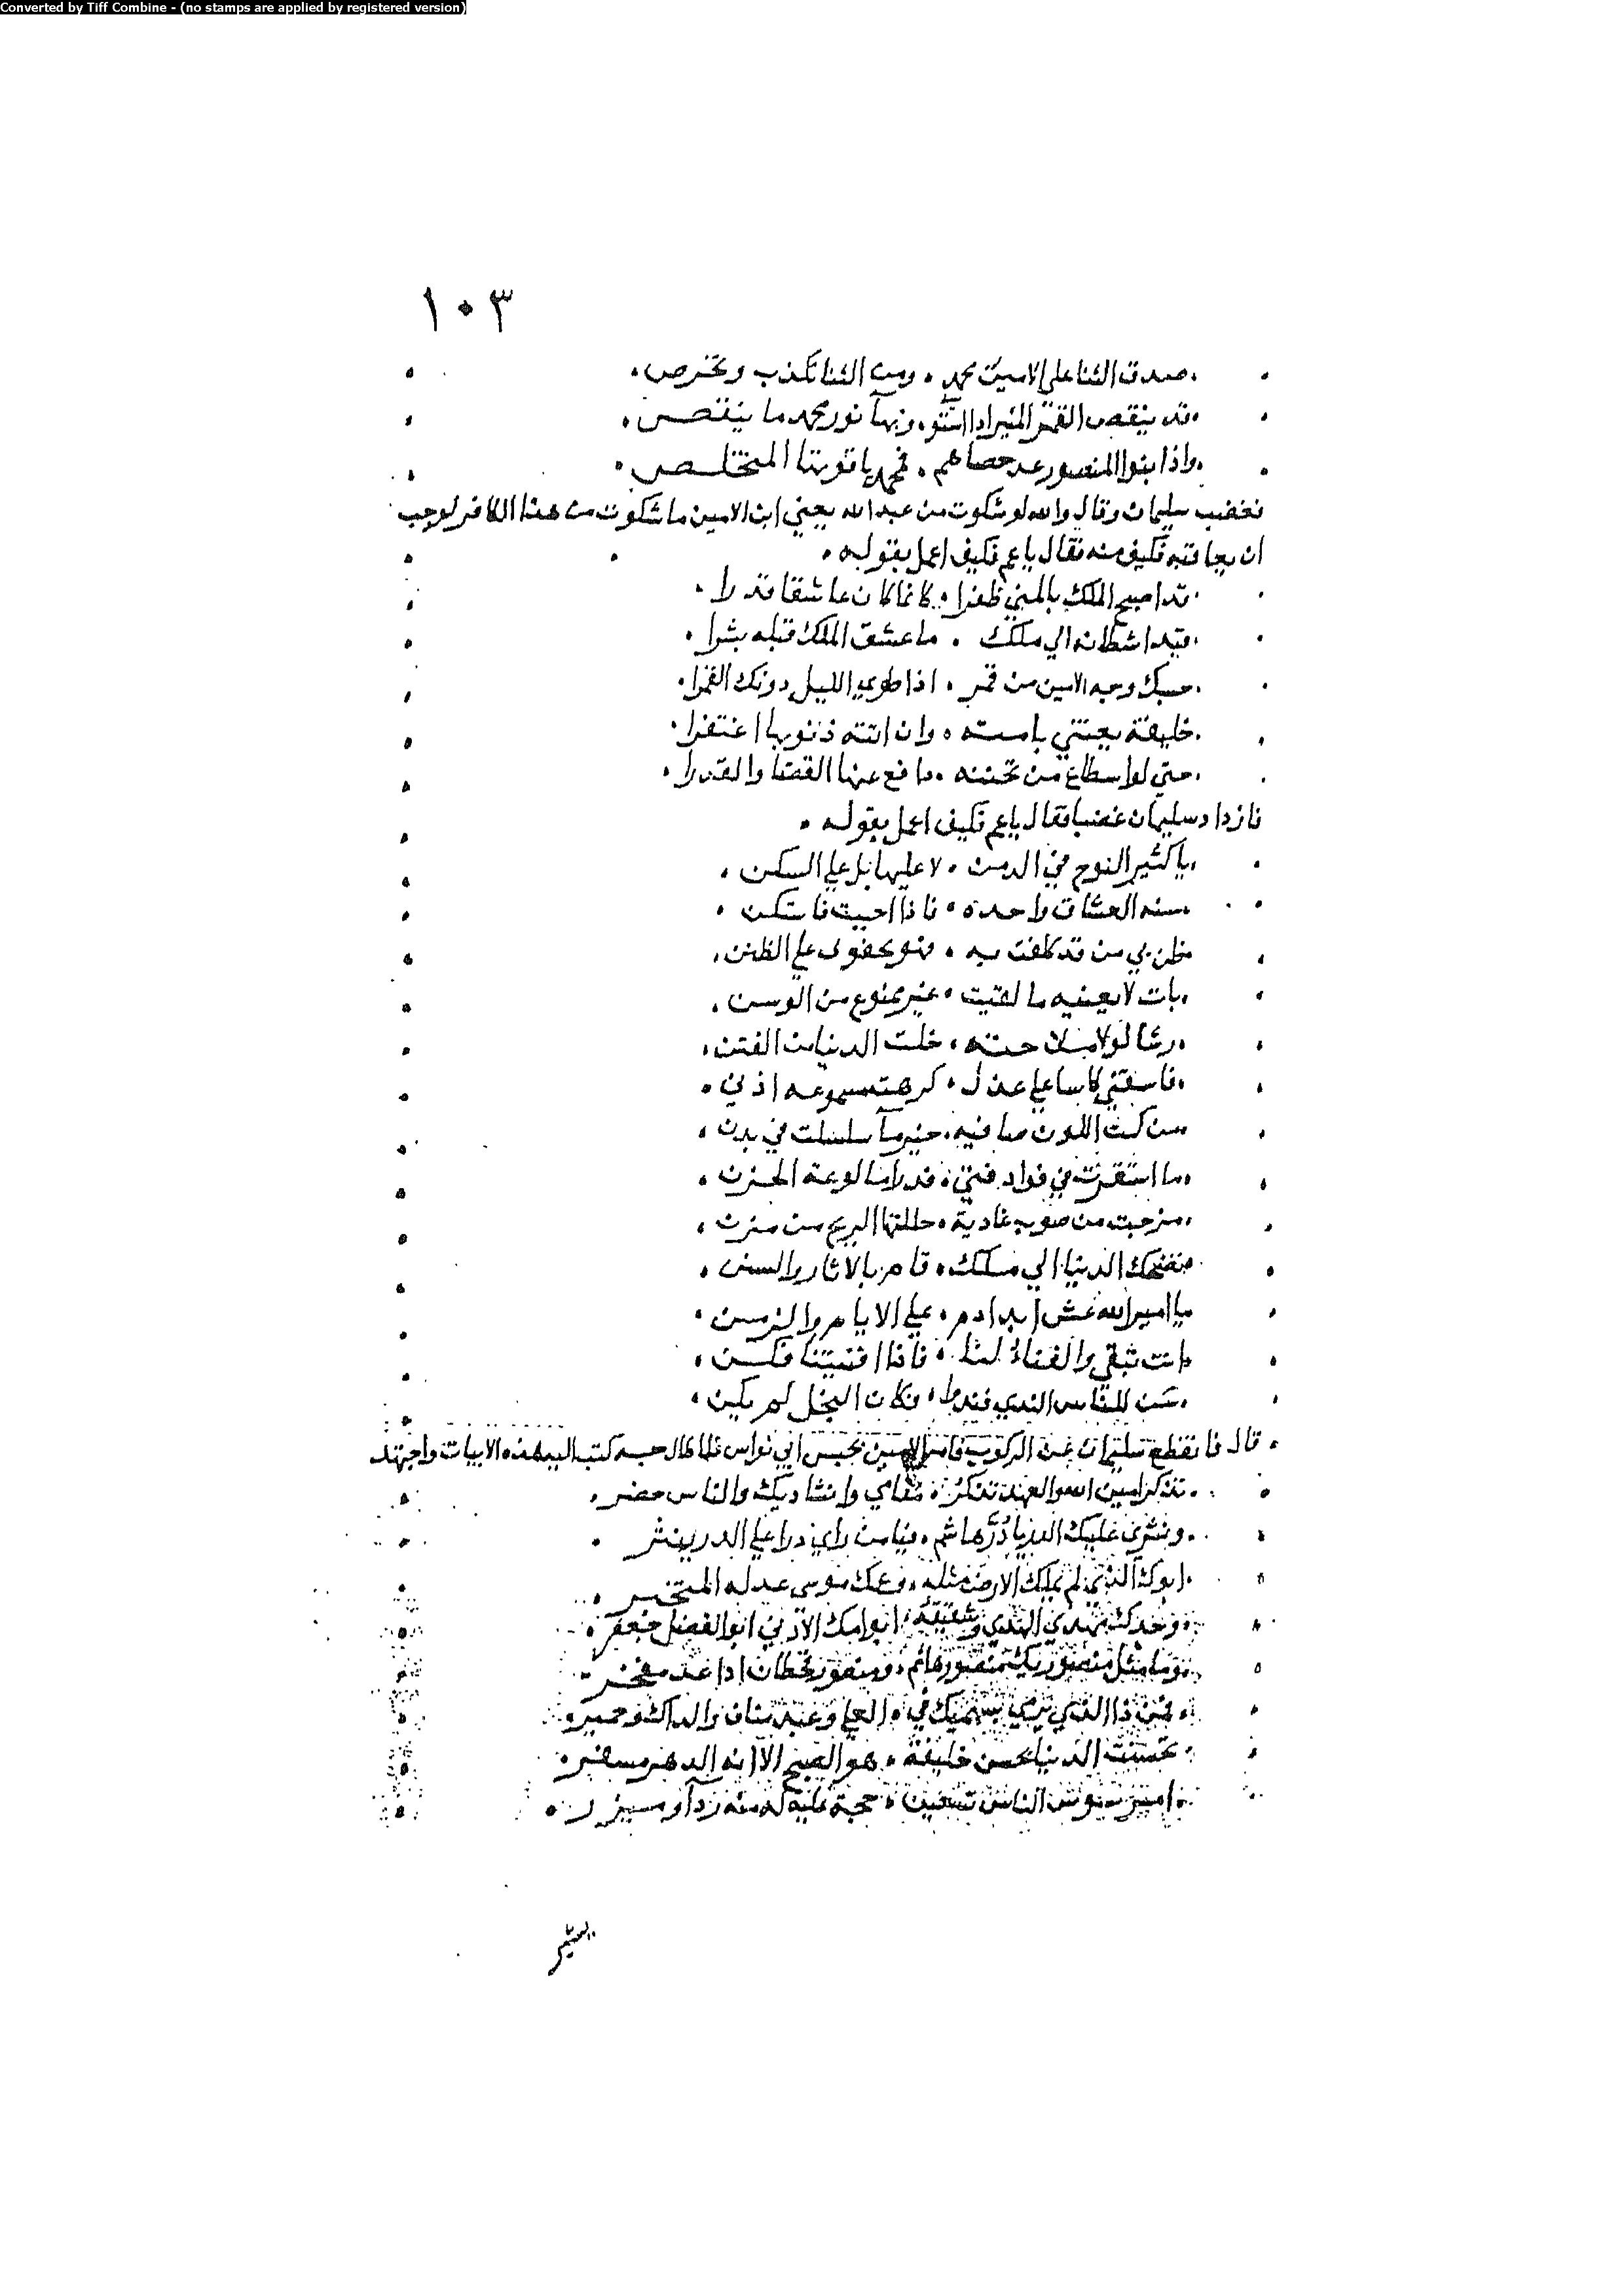 Converted by Tiff Combine - (no stamps are applied by registered version)
١٠٣
صدق الثنا على الامين محمد ، ومن الثنا تكذب وتخرص ،
قد ينقص القمر المنير اذا استوى ، وبها نور محمد ما ينقص ،
واذا بنوا المنصور عد حصاهم ، فمحمد ياقوتها المتخلص ،
فغضب سليمان وقال والله لو شكوت من عبد الله يعني ابن الامين ما شكوت من هذا الكافر لوجب
ان يعاقبه فكيف منه فقال يا عم فكيف اعمل بقوله ،
قد اصبح الملك بالمني ظفرا ، كانما كان عاشقا قدرا ،
قيد اشطانه الي ملك ، ما عشق الملك قبله بشرا ،
حسبك وجه الامين من قمر ، اذا طوي الليل دونك القمرا ،
خليفة يعتني بامته ، وان اتته ذنوبها اغتفرا ،
حتي لو اسطاع من تحننه ، دافع عنها القضا والقدرا ،
فازداد سليمان غضبا فقال يا عم فكيف اعمل بقوله ،
يا كثير النوح في الدمن ، لا عليها بل علي السكن ،
سنه العشاق واحدة ، فاذا احببت فاستكن ،
ظن بي من قد كلفت به ، فهو يجفوني علي الظنن ،
بات لا يعنيه ما لقيت ، عين ممنوع من الوسن ،
رشا لولا ملاحته ، خلت الدنيا من الفتن ،
فاسقني كاسا علي عذل ، كرهت مسموعه اذني ،
من كميت اللون صافيه ، خير ما سلسلت في بدن ،
ما استقرت في فواد فتي ، فدرا ما لوعة الحزن ،
مزجت من صوب غادية ، حللتها الريح من مزن ،
تضحك الدنيا الي ملك ، قام بالاثار والسنن ،
يا امير الله عش ابدا ، دم علي الايام والزمن ،
انت تبقي والفناء لنا ، فاذا افنيتنا فكن ،
سن للناس الندي فندوا ، فكان البخل لم يكن ،
قال فانقطع سليمان عن الركوب فامر الامين بحبس ابي نواس فلما طال حبسه كتب اليه هذه الابيات واجتهد
تذكر امين الله والعهد تذكر ، مقامي وانشاديك والناس حضر ،
ونثري عليك الدر يا در هاشم ، فيا من راي درا علي الدر ينثر ،
ابوك الذي لم يملك الارض مثله ، وعمك موسى عدله المتخير ،
وجدك مهدي الهدي وشقيقه ، ابو امك الادني ابو الفضل جعفر ،
وما مثل منصوريك منصور هاشم ، ومنصور قحطان اذا عد مفخر ،
فمن ذا الذي يرمي بسهميك في ، العلي وعبد مناف والداك وحمير ،
تحسنت الدنيا بحسن خليفة ، هو الصبح الا انه الدهر مسفر ،
امير يسوس الناس تسعين حجة ، عليه له منه ردا وميزر ،
يشير